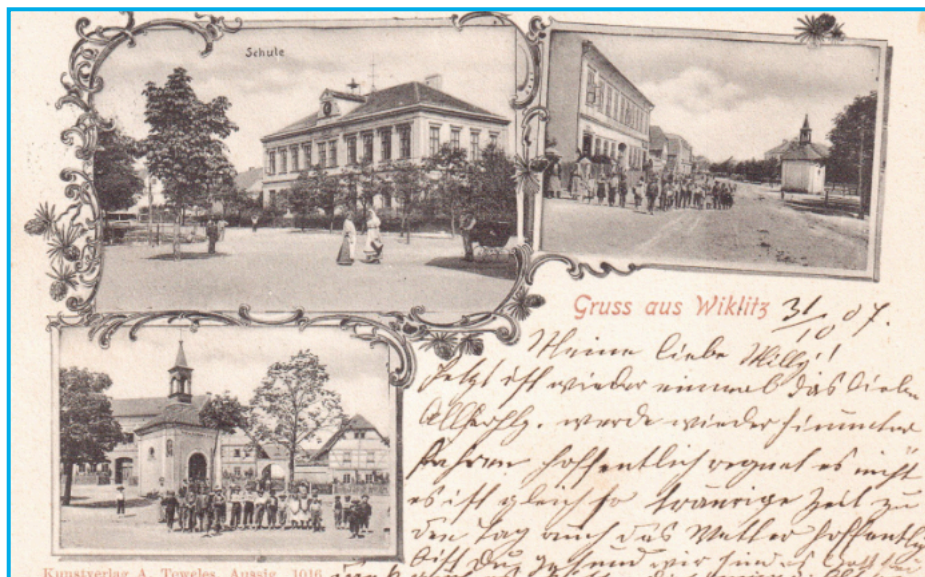 Schule
Gruss aus Wiklitz 31/10 07.
Meine liebe Milly!
Jetzt ist wieder einmal das liebe
werde wieder hinunter
fahren hoffentlich regnet es nicht
es ist gleich so traurige Zeit zu
den Tag auch das Wetter hoffentlich
bist Du gesund wir sind es Gott sei
Kunstverlag A. Toweles, Aussig. 1016